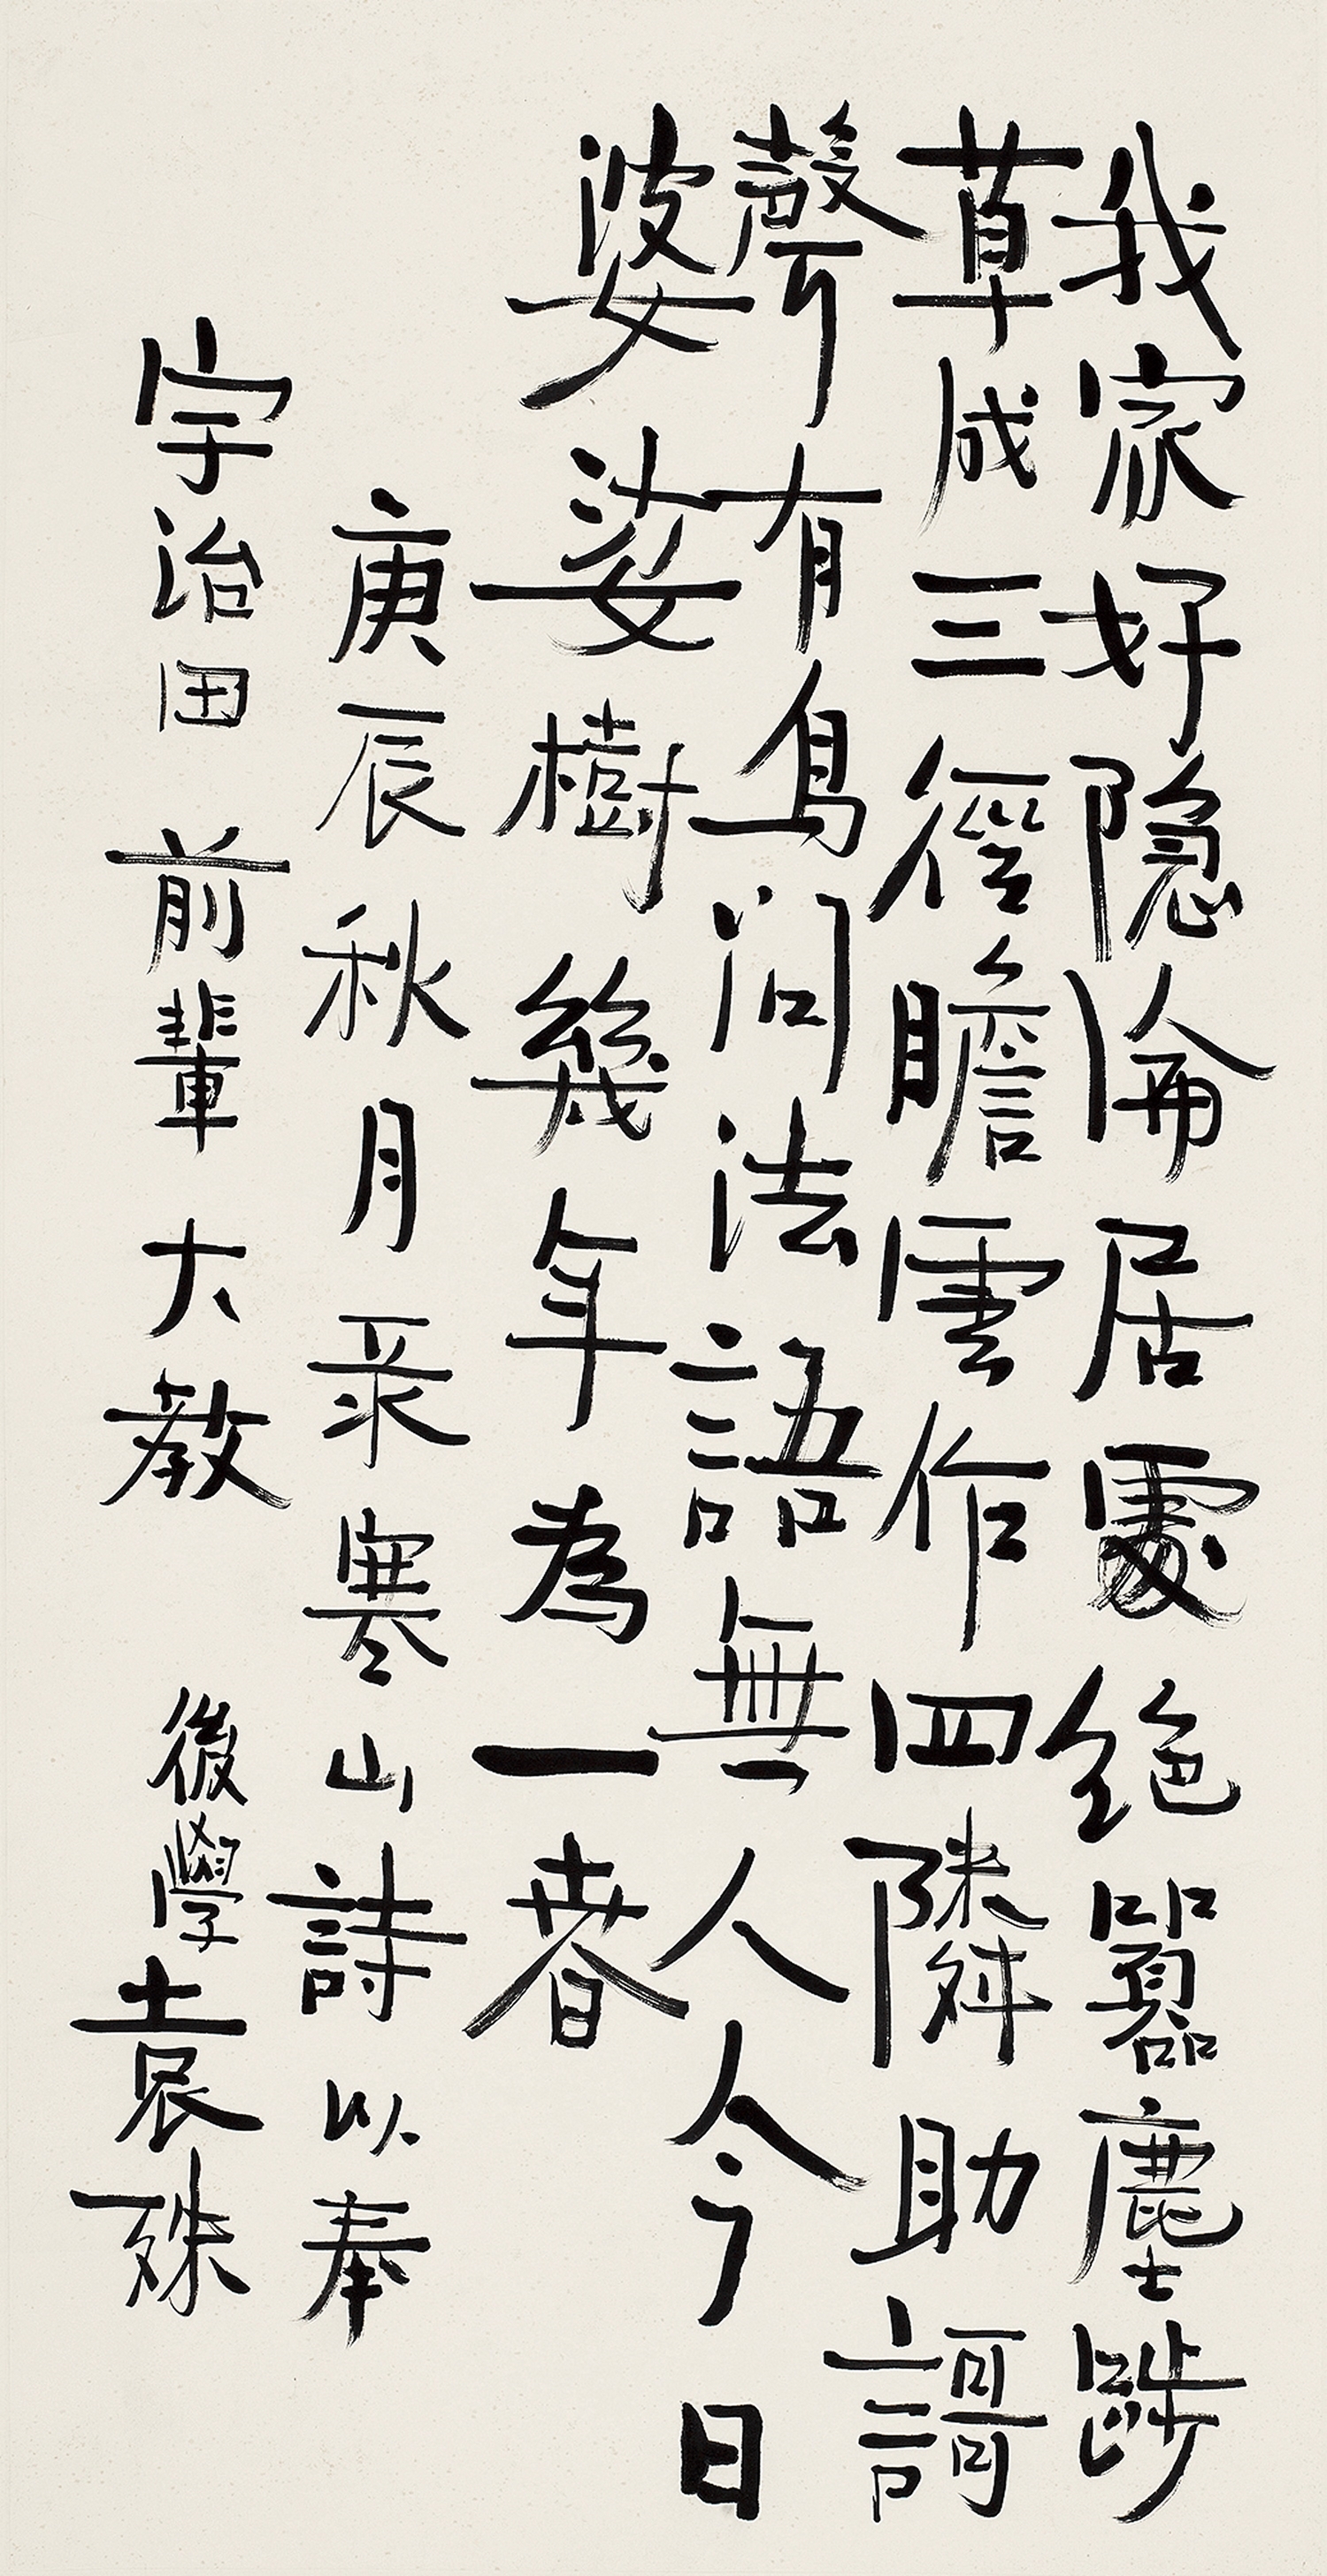 我家好隐淪居處絕囂塵踐
草成三徑瞻雲作四隣助謌
聲有鳥問法語無人今日
婆娑樹幾年為一春
庚辰秋月录寒山詩以奉
宇治田 前輩 大教 後學袁殊